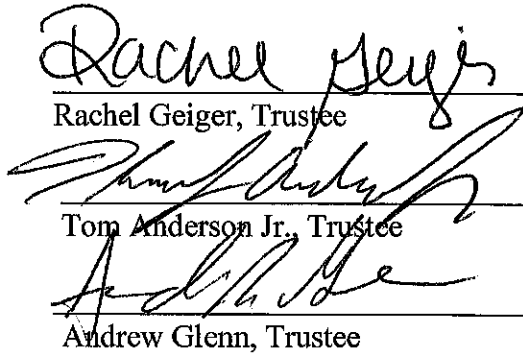 Rachel Geiger
Rachel Geiger, Trustee
Tom Anderson Jr., Trustee
Andrew Glenn, Trustee